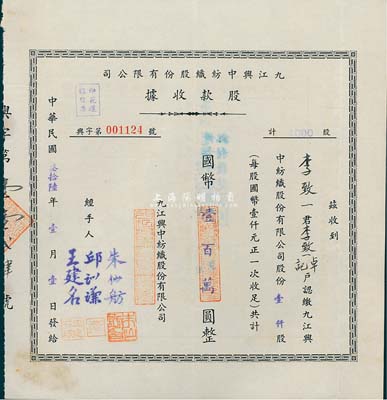 九江興中紡織股份有限公司
股款收據
興字第 001124 號
計 股
茲收到
李子致一君李致一記戶認繳九江興
中紡織股份有限公司股份壹仟股
(每股國幣壹仟元正一次收足)共計
國幣壹百萬圓整
九江興中紡織股份有限公司
經手人
朱仙舫
邱訓謙
王建名
中華民國叁拾陸年壹月壹日發給
興字第
號